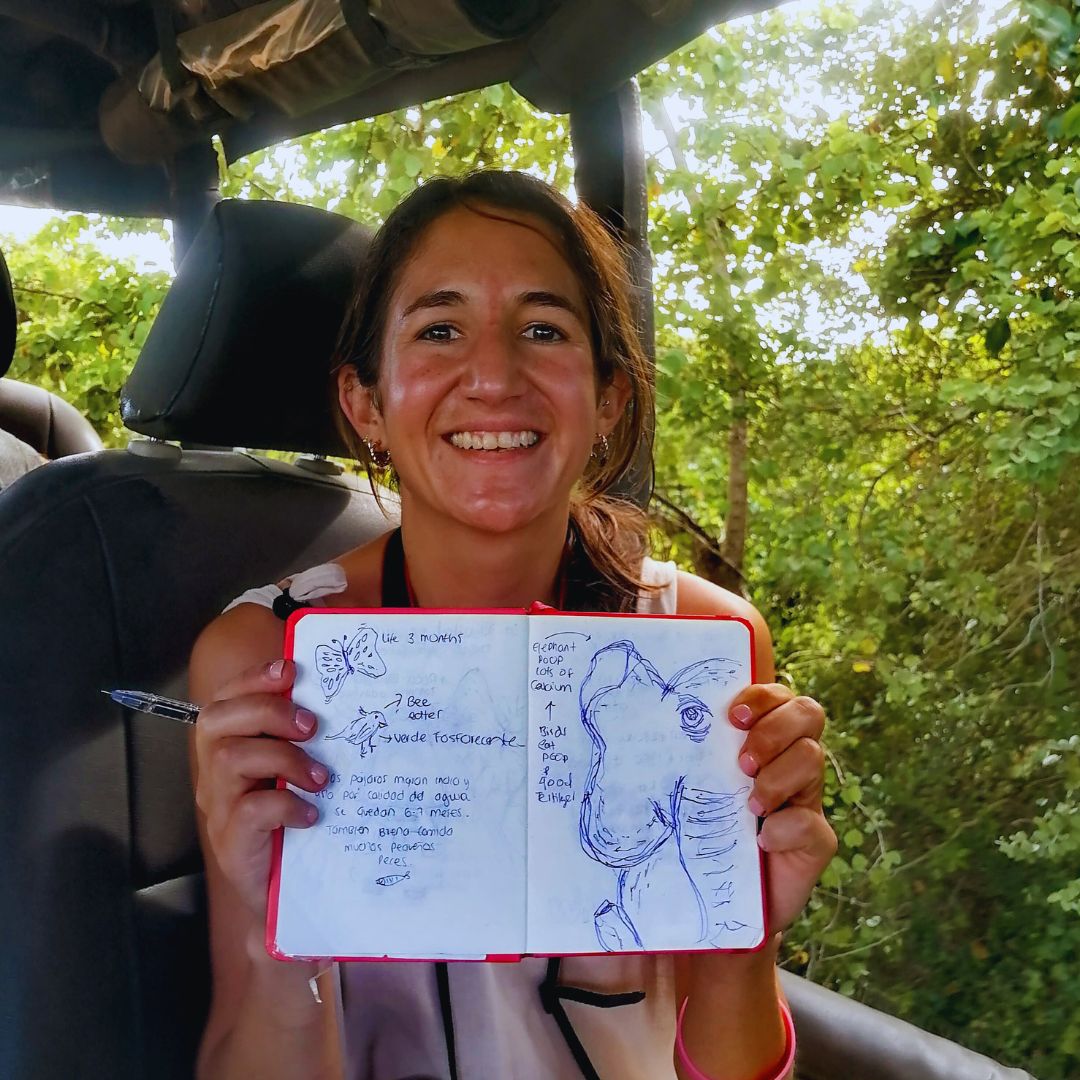 life 3 months
Bee
eatter
verde Fosforecente
os pajaros migran indio y
por calidad del agua
se quedan 6-7 meses.
Tambien buena comida
muchos pequeños
Peces.
Elephant
POOP
Lots of
Calcium
Birds
Eat
POOP
&
good